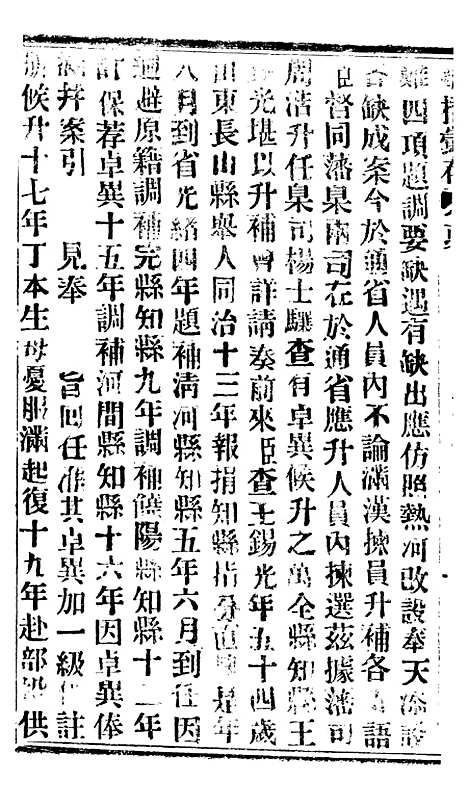 難四項題調要缺遇有缺出應仿照熱河改設奉天添設
各缺成案今於通省人員內不論滿漢揀員升補各語
臣督同藩臬兩司在於通省應升人員內揀選茲據藩司
周浩升任臬司楊士驤查有卓異候升之萬全縣知縣王
錫光堪以升補會詳請奏前來臣查王錫光年五十四歲
山東長山縣舉人同治十三年報捐知縣指分直 是年
八月到省光緒四年題補清河縣知縣五年六月到任因
迴避原籍調補完縣知縣九年調補饒陽縣知縣十二年
計保荐卓異十五年調補河間縣知縣十六年因卓異俸
滿并案引 見奉 旨回任准其卓異加一級 註
候升十七年丁本生母憂服滿起復十九年赴部 供